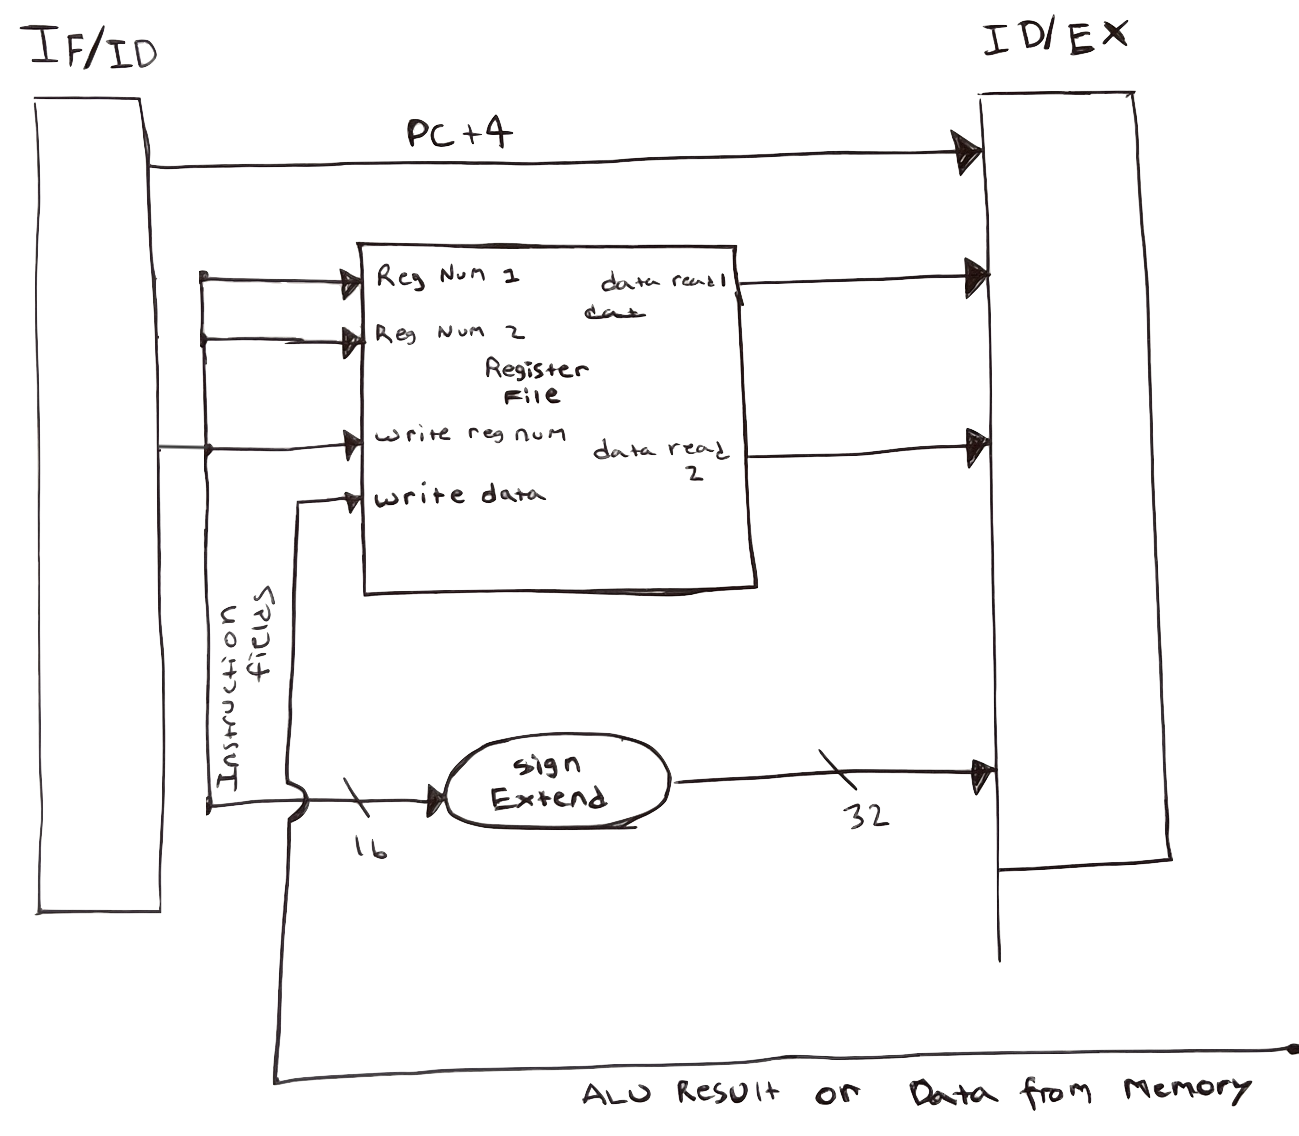 IF/ID
ID/EX
PC+4
Reg Num 1
data read 1
dat
Reg Num 2
Register
File
write reg num
data read
2
write data
Instruction
fields
sign
Extend
16
32
ALU Result or Data from Memory